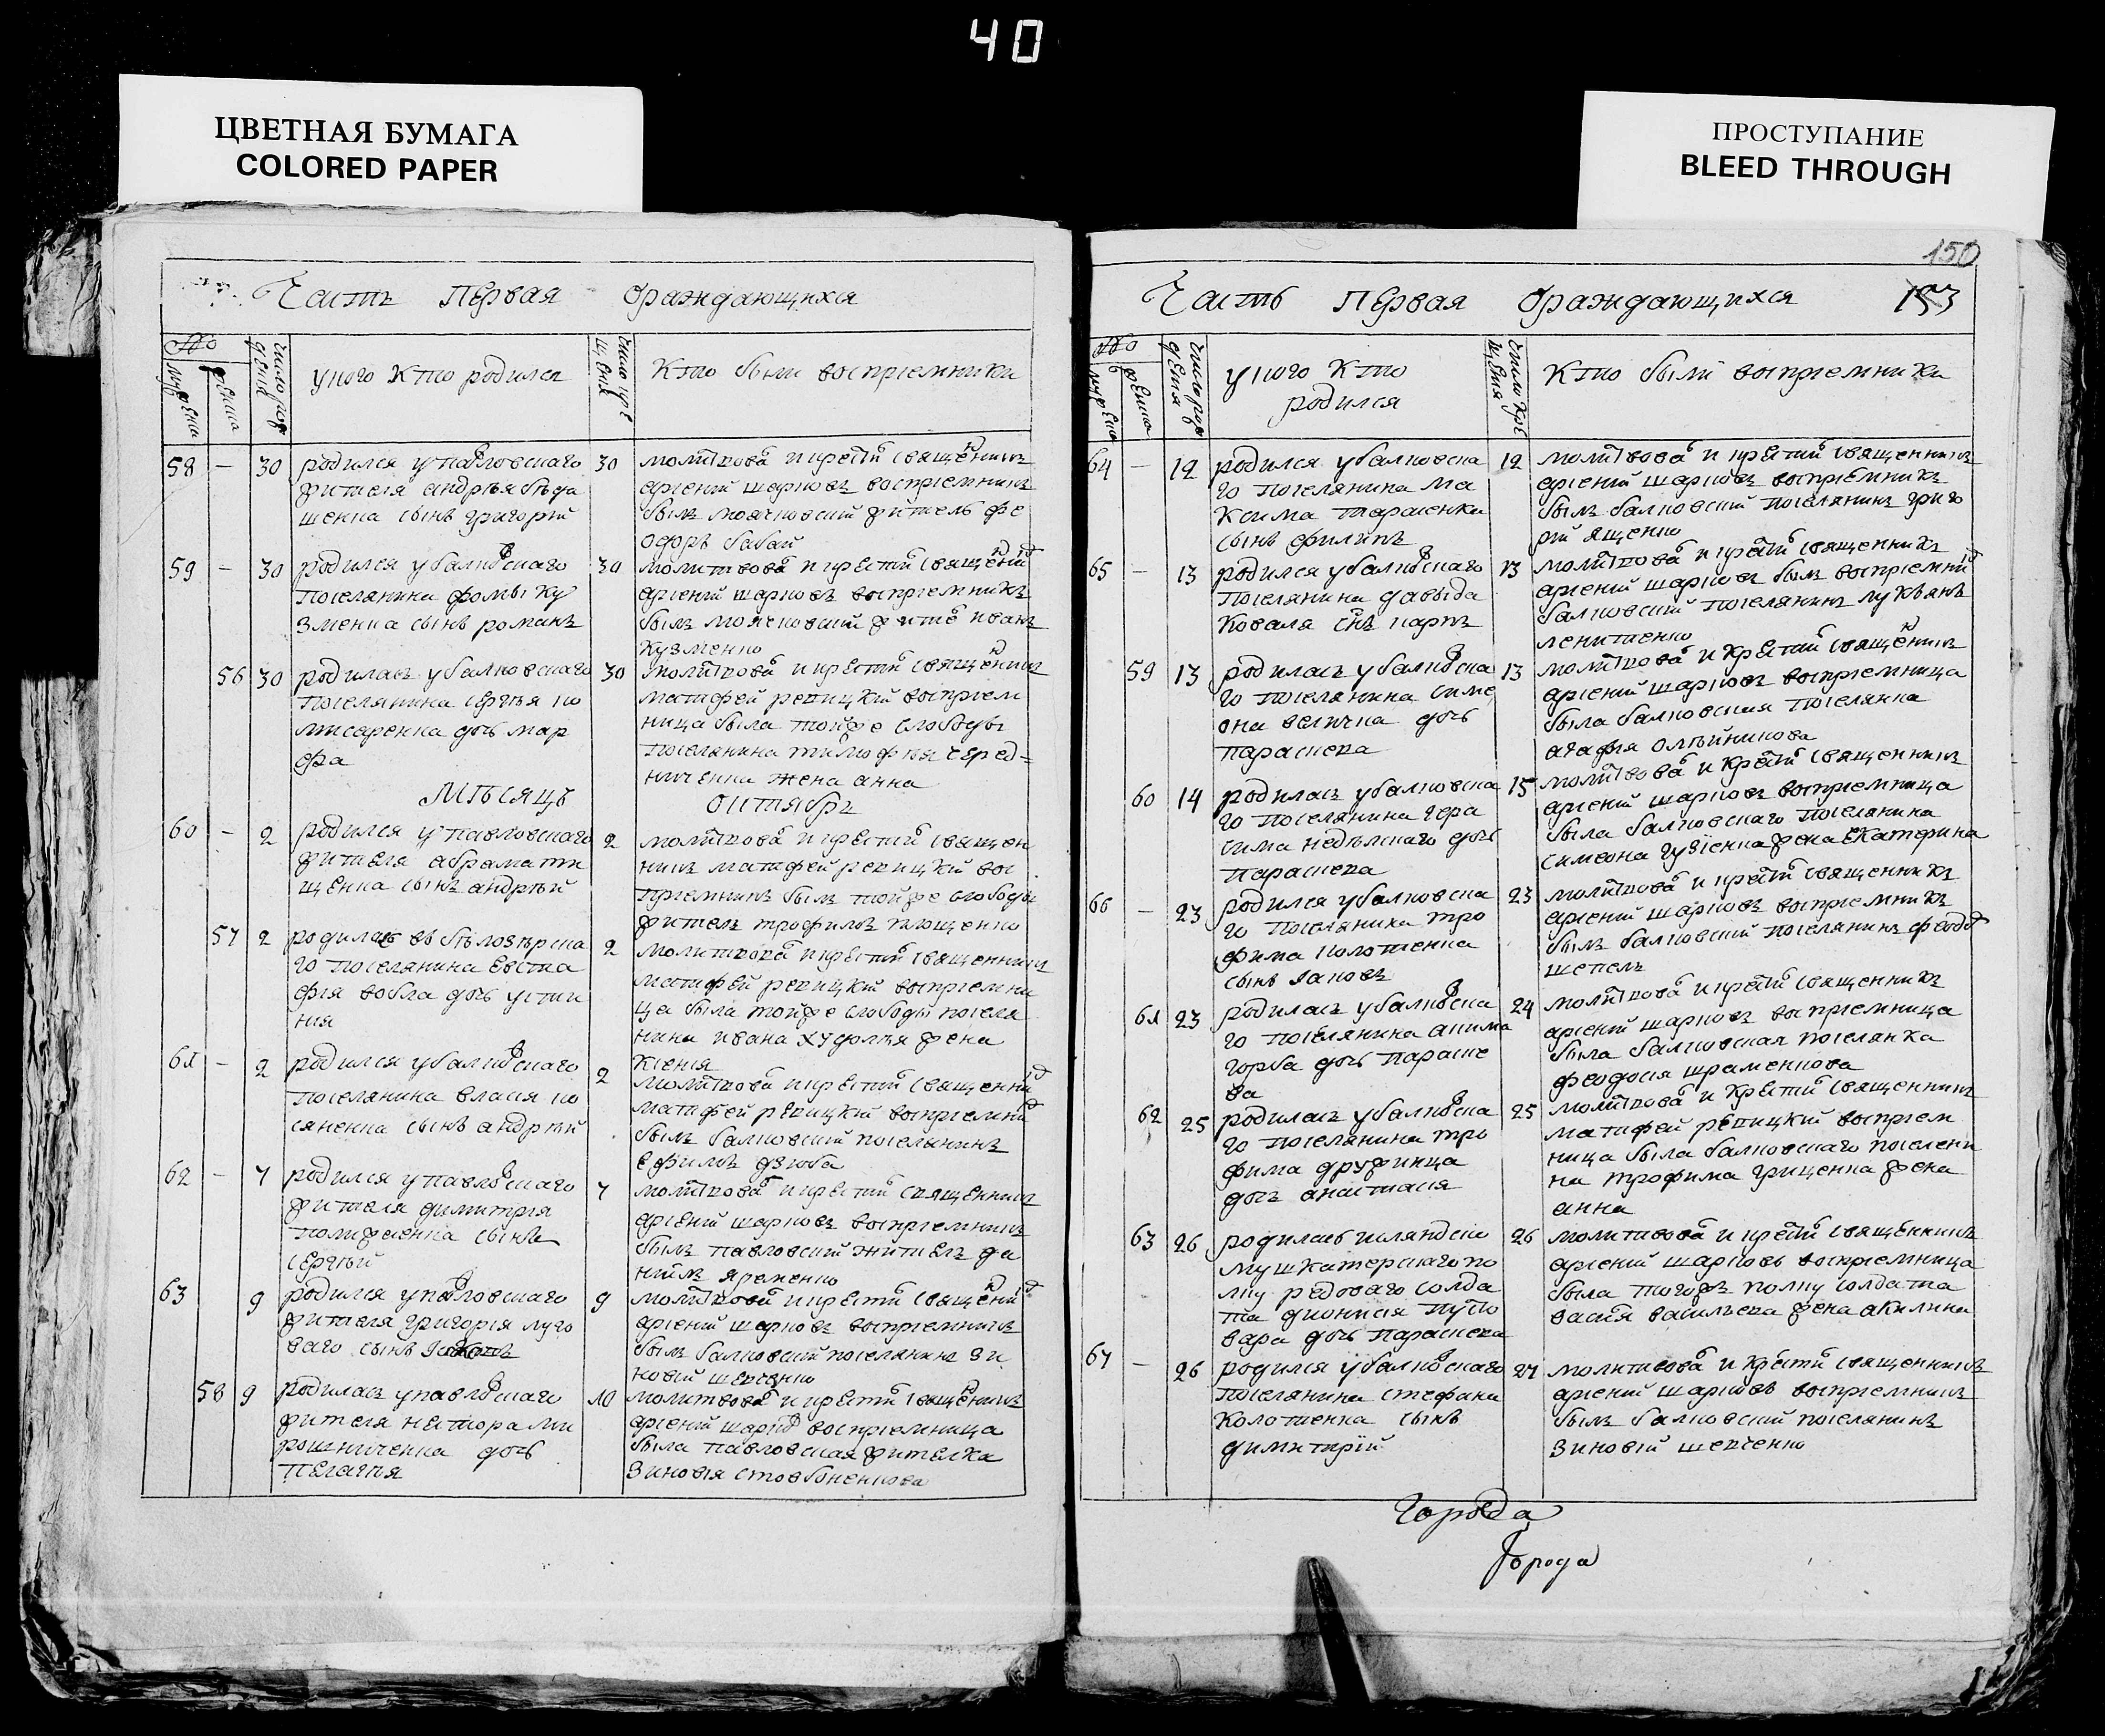 40
ЦВЕТНАЯ БУМАГА
COLORED PAPER
ПРОСТУПАНИЕ
BLEED THROUGH
Часть Первая ораждающихся
№
мужеска
женска
число рож
дения
у кого кто родился
число кре
щения
Кто были восприемники
58 – 30 родился у павловскаго
жителя андрѣя бѣда
шенка сынъ григорій
30 молитвова и крести священникъ
арсеній шарковъ восприемникъ
былъ моячковскій житель фе
одоръ бабай
59 – 30 родился у балковскаго
поселянина фомы ку
зменка сынъ романъ
30 молитвова и крести священникъ
арсеній шарковъ восприемникъ
былъ моячковскій жите иванъ
кузменко
56 30 родилась у балковскаго
поселянина сергѣя ко
мисаренка дочь мар
фа
30 молитвова и крести священникъ
матфей репицкій восприем
ница была тойже слободы
поселянина тимофѣя серед=
ниченка жена анна
Мѣсяцъ октябръ
60 – 2 родился у павловскаго
жителя абрама ти
щенка сынъ андрѣй
2 молитвова и крести священ
никъ матфей репицкій вос
приемникъ былъ тойже слободы
житель трофимъ тищенко
57 2 родилась въ бѣловѣрска
го поселянина евста
фія вобла дочь усти
нія
2 молитвова и крести священникъ
матфей репицкій восприемни
ца была тойже слободы поселя
нина ивана худолѣя жена
ксенія
61 – 2 родился у балковскаго
поселянина власія ко
сяненка сынъ андрѣй
2 молитвова и крести священни
матфей репицкій восприемни
былъ балковскій поселянинъ
ефимъ дзюба
62 – 7 родился у павловскаго
жителя димитрія
сынъ
сергѣй
7 молитвова и крести священникъ
арсеній шарковъ восприемникъ
былъ павловскій житель да
нилъ яременко
63 9 родился у павловскаго
жителя григорія луго
ваго сынъ Іаковъ
9 молитвова и крести священи
арсеній шарковъ восприемникъ
былъ балковскій поселянинъ зи
новій шевченко
58 9 родилась у павловскаго
жителя нестора ми
рошниченка дочь
пелагѣя
10 молитвова и крести священникъ
арсеній шарков восприемница
была павловская жителка
зиновія стовбоненкова
150
153
Часть Первая ораждающихся
№
мужеска
женска
число рож
дения
у кого кто
родился
число кре
щения
Кто были восприемники
64 – 12 родился у балковска
го поселянина ма
ксима тарасенки
сынъ филипъ
12 молитвова и крестил священникъ
арсеній шарковъ восприемникъ
былъ балковскій поселянинъ григо
рій ященко
65 – 13 родился у балковскаго
поселянина давыда
коваля снъ карпъ
13 молитвова и крести священникъ
арсеній шарковъ былъ восприемни
балковскій поселянинъ лукѣянъ
59 13 родилась у балковска
го поселянина симе
она величка дочь
параскева
13 молитвова и крестил священникъ
арсеній шарковъ восприемница
была балковская поселянка
агафія олѣйникова
60 14 родилась у балковска
го поселянина гера
сима недѣлскаго дочь
параскева
15 молитвова и крести священникъ
арсеній шарковъ восприемница
была балковскаго поселянина
симеона жена екатерина
66 – 23 родился у балковска
го поселянина тро
фима колотенка
сынъ Іаковъ
23 молитвова и крести священникъ
арсеній шарковъ восприемникъ
былъ балковскій поселянинъ федо
шепель
61 23 родилась у балковска
го поселянина акима
горба дочь параске
ва
24 молитвова и крести священникъ
арсеній шарковъ восприемница
была балковская поселянка
феодосія шраменкова
62 25 родилась у балковска
го поселянина тро
фима дружинца
дочъ анастасія
25 молитвова и крестил священникъ
матфей репицкій восприем
ница была балковскаго поселени
на трофима гриценка жена
анна
63 26 родилась
мушкатерскаго по
лку редоваго солда
та дионисія пуго
вара дочь параскева
26 молитвова и крести священникъ
арсеній шарковъ восприемница
была тогожъ полку солдата
васіля васильева жена акилина
67 – 26 родился у балковскаго
поселянина стефана
колотенка сынъ
димитрій
27 молитвова и крести священникъ
арсеній шарковъ восприемникъ
былъ балковскій поселянинъ
зиновій шевченко
города
Города